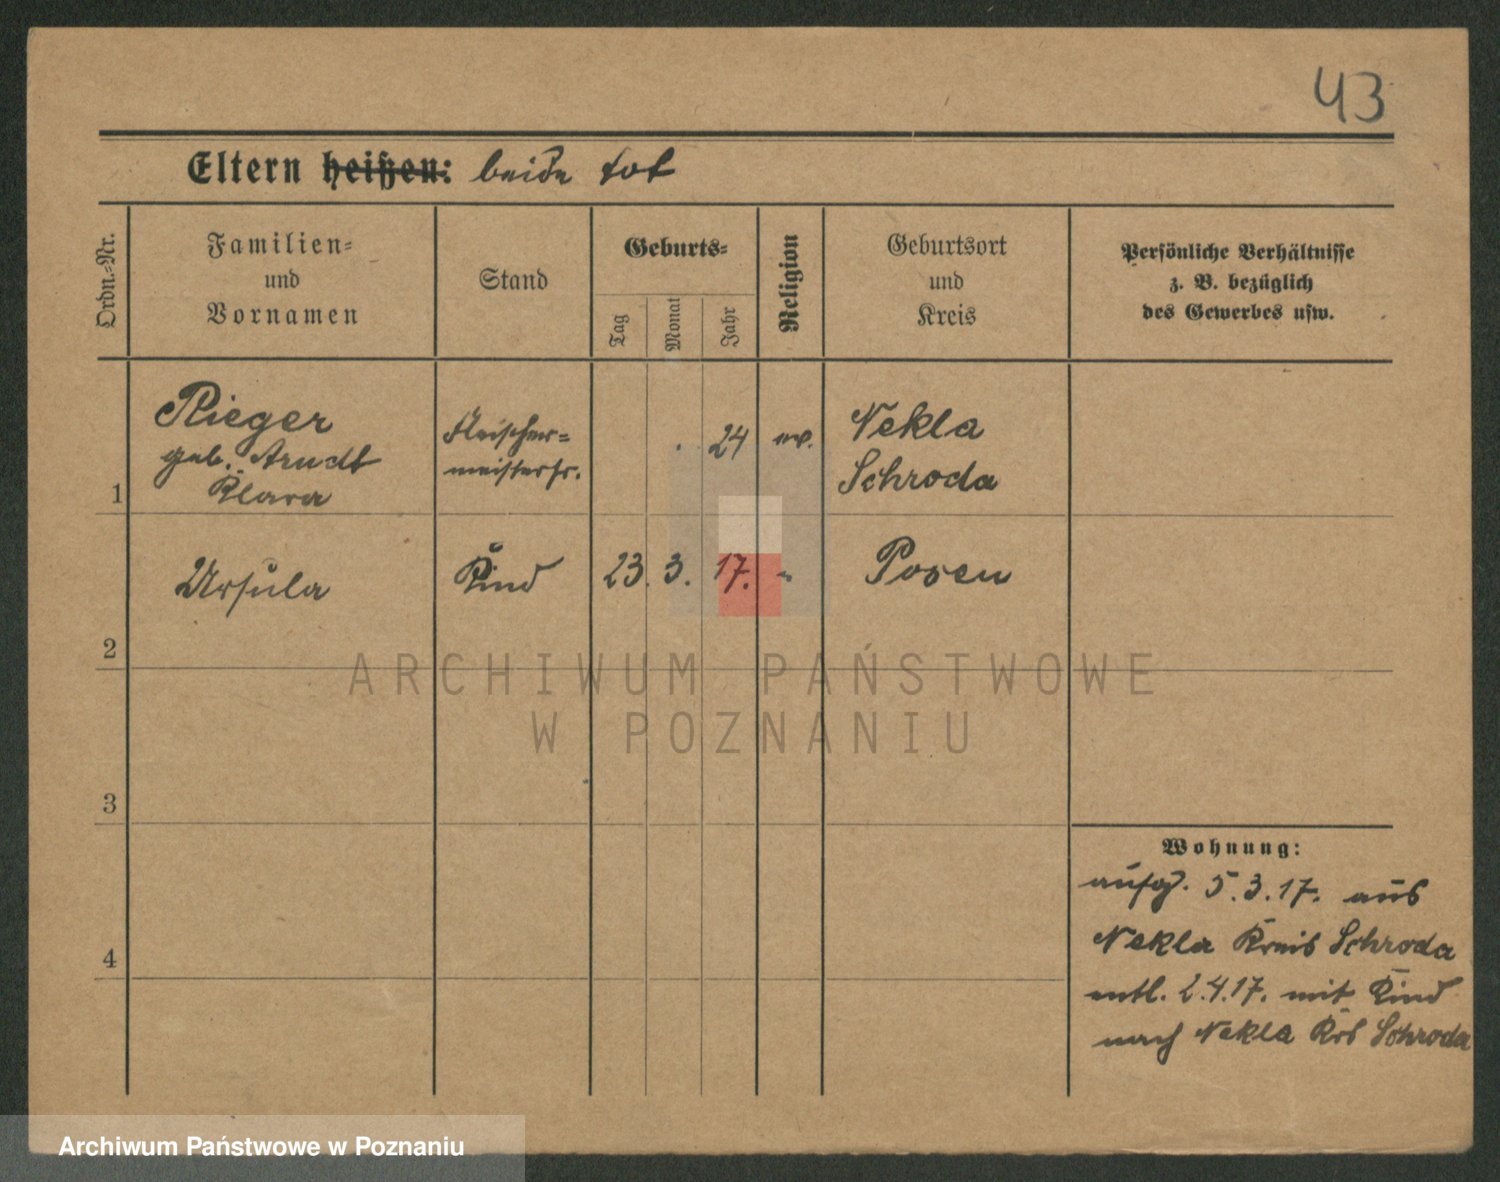 43
Eltern heißen: beide tot
Ordn.=Nr.
Familien=
und
Vornamen
Stand
Geburts=
Tag
Monat
Jahr
Religion
Geburtsort
und
Kreis
Persönliche Verhältnisse
z. B. bezüglich
des Gewerbes usw.
1
Rieger
geb. Arndt
Klara
Fleischer=
meisterfr.
24
ev.
Nekla
Schroda
2
Ursula
Kind
23. 3. 17. "
Posen
ARCHIWUM PAŃSTWOWE
W POZNANIU
3
4
Wohnung:
aufg. 5.3.17. aus
Nekla Kreis Schroda
entl. 2.4.17. mit Kind
nach Nekla Krs Schroda
Archiwum Państwowe w Poznaniu